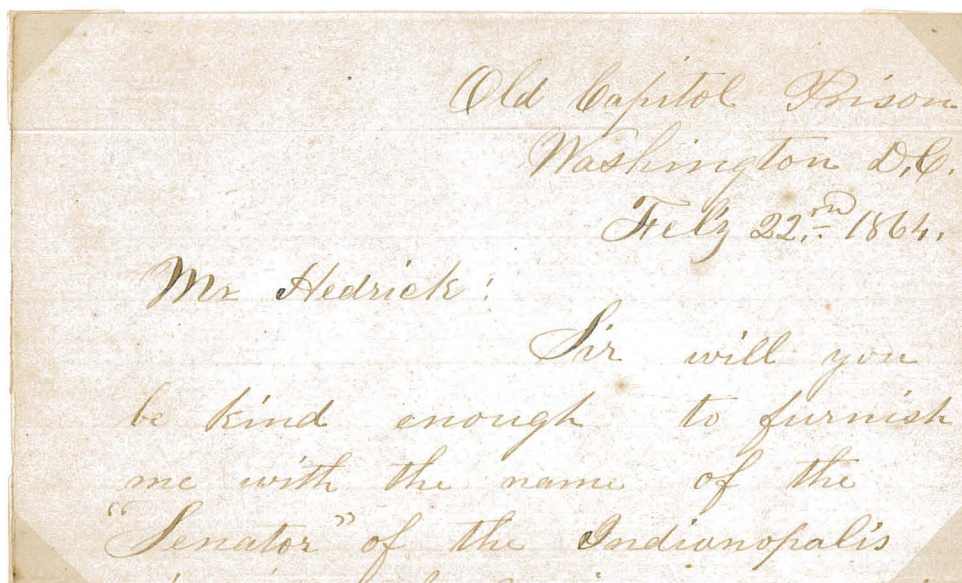 Old Capitol Prison
Washington D.C.
Feb'y 22.nd 1864.
Mr Hedrick!
Sir will you
be kind enough to furnish
me with the name of the
"Senator" of the Indianopalis